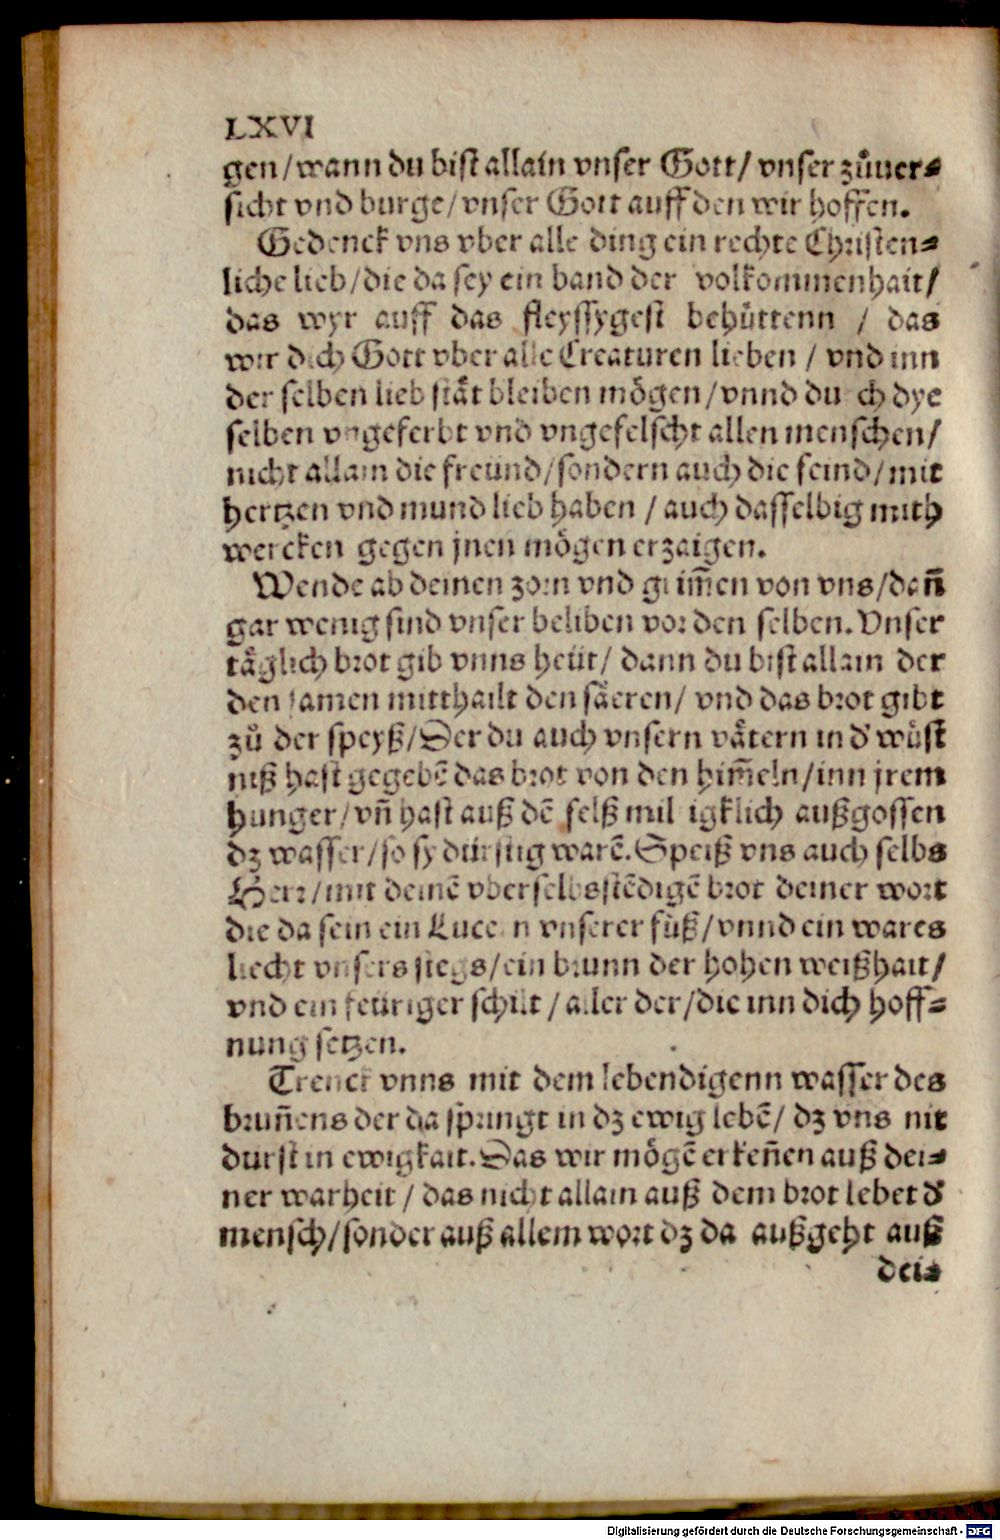 LXVI
gen/wann du bist allain vnser Gott/ vnser zůuer⸗
sicht vnd burge/vnser Gott auff den wir hoffen.
Gedenck vns vber alle ding ein rechte Christen⸗
liche lieb/die da sey ein band der volkommenhait/
das wyr auff das fleyssygest behüttenn / das
wir dich Gott vber alle Creaturen lieben / vnd inn
der selben lieb stät bleiben mögen/vnnd du ch dye
selben vngeferbt vnd vngefelscht allen menschen/
nicht allain die freünd/sondern auch die feind/mit
hertzen vnd mund lieb haben / auch dasselbig mith
wercken gegen jnen mögen erzaigen.
Wende ab deinen zorn vnd grim̃en von vns/dañ
gar wenig sind vnser beliben vor den selben. Vnser
täglich brot gib vnns heüt/ dann du bist allain der
den samen mitthailt den säeren/ vnd das brot gibt
zů der speyß/Der du auch vnsern vätern in d' wüst
niß hast gegebẽ das brot von den him̃eln/inn jrem
hunger/vñ hast auß dẽ felß mil igklich außgossen
dz wasser/so sy dürstig warẽ. Speiß vns auch selbs
Herr/mit deinẽ vberselbsstẽdigẽ brot deiner wort
die da sein ein Lucern vnserer füß/vnnd ein wares
liecht vnsers stegs/ein brunn der hohen weißhait/
vnd ein feüriger schilt / aller der/die inn dich hoff⸗
nung setzen.
Trenck vnns mit dem lebendigenn wasser des
bruñens der da springt in dz ewig lebẽ/ dz vns nit
durst in ewigkait. Das wir mögẽ erkeñen auß dei⸗
ner warheit / das nicht allain auß dem brot lebet d'
mensch/sonder auß allem wort dz da außgeht auß
dei⸗
Digitalisierung gefördert durch die Deutsche Forschungsgemeinschaft - DFG